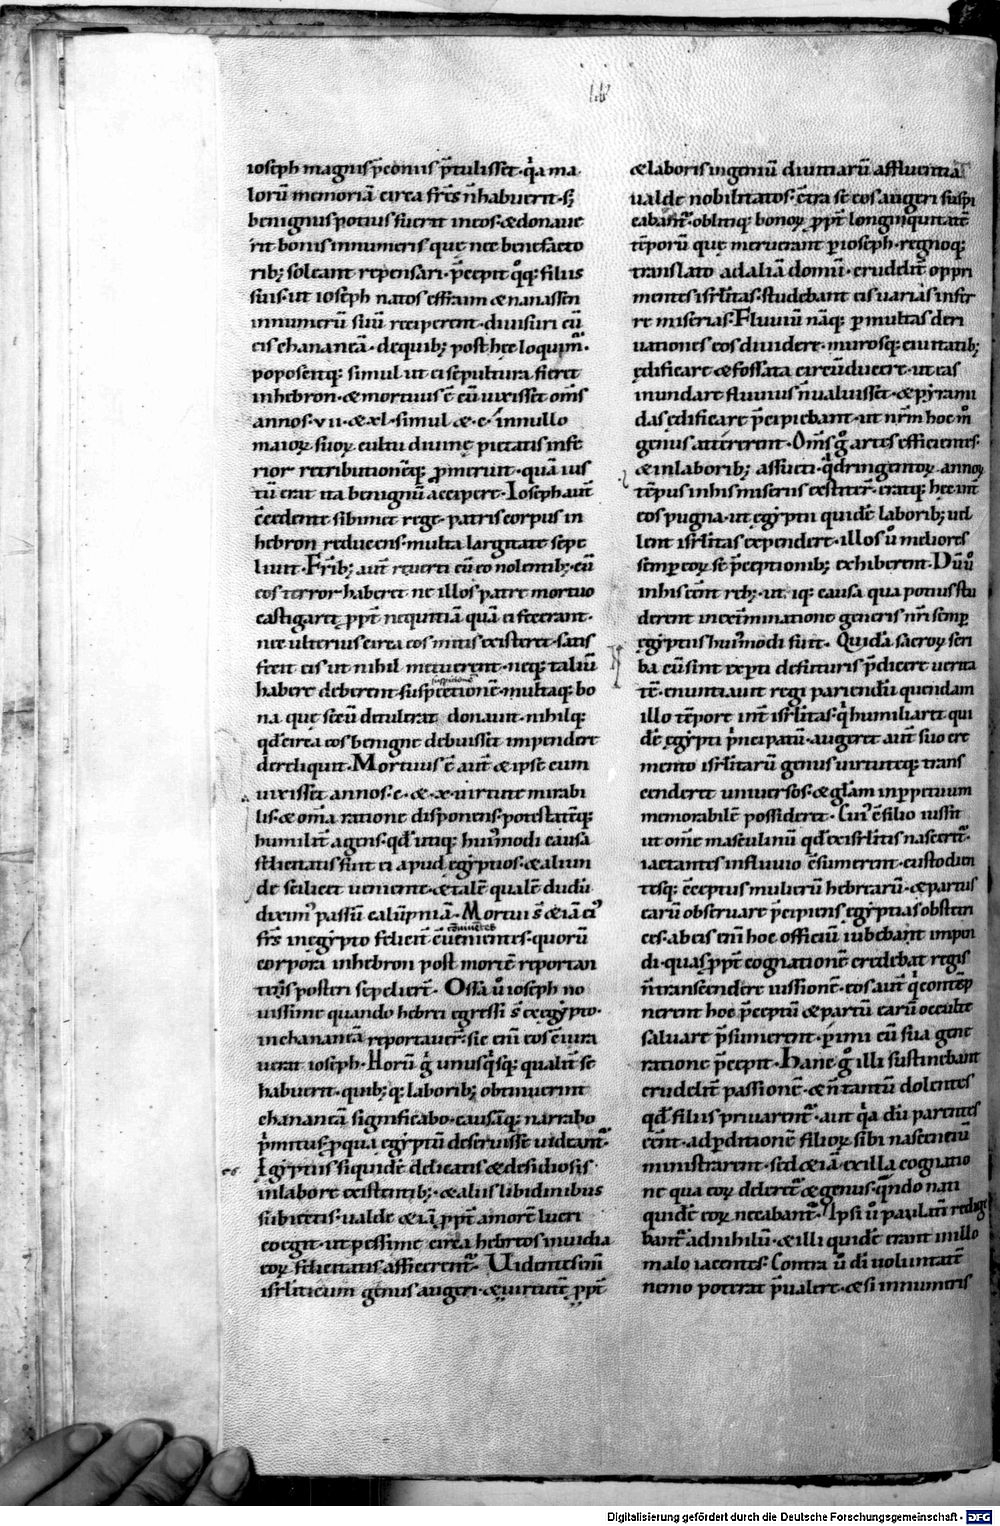 ioseph magnis p̄coniis p̄tulisset· q̇a ma
lorū memoriā circa frēs n̄ habuerit· sꝫ
benignus potius fuerit in eos· & donaue
rit bonis innumeris que nec benefacto
ribꝫ soleant repensari· p̄cepit q̊qꝫ filiis
suis· ut ioseph natos effraim & manassen
innumerū suū reciperent· diuisuri cū
eis chananeā· de quibꝫ post hec loquim᷑·
poposcitqꝫ simul ut ei sepultura fieret
in hebron· & mortuus ē cū uixisset om̄s
annos· vii· & xl· simul & ·c· in nullo
maioꝝ suoꝝ cultu diuine pietatis infe
rior retributionēqꝫ p̄meruit· quā ius
tū erat ita benignū accipere· Ioseph aut̄
c̄cedente sibimet rege· patris corpus in
hebron reducens· multa largitate sepe
liuit· Fr̄ibꝫ aut̄ reuerti cū eo nolentibꝫ· cū
eos terror haberet ne illos patre mortuo
castigaret ꝓpt̄ nequitiā quā ei fecerant·
nec ulterius circa eos mitis existeret· satis
fecit eis ut nihil metuerent· neqꝫ taliū
suspitionē
habere deberent suspectionē· multaqꝫ bo
na que secū detulerat donauit· nihilqꝫ
qd̄ circa eos benigne debuisset impendere
dereliquit· Mortuus ē aut̄ & ipse cum
uixisset annos· c· & ·x· uirtute mirabi
lis· & om̄ia ratione disponens· potestatēqꝫ
humilit̄ agens· qd̄ utiqꝫ hui᷒modi causa
felicitatis fuit ei apud egyptios· & aliun
de scilicet ueniente· & talē qualē dudū
dixim᷒ passū calūpniā· Mortui s̄ & iā ei᷒
c̄uiuentes
frēs in egypto felicit̄ cūuenientes· quorū
corpora in hebron post mortē reportan
tes eis posteri sepeliert̄· Ossa ů ioseph no
uissime quando hebrei egressi s̄ ex egypto·
in chananeā reportauer̄· sic eni eos c̄iura
uerat ioseph· Horū g̊ unusq̇sqꝫ qualit̄ se
habuerit· quibꝫqꝫ laboribꝫ obtinuerint
chananeā significabo· causāqꝫ narrabo
p̄mitus ꝑ qua egyptū deseruisse uideant᷑·
Egyptus siquidē delicatis & desidiosis
in labore existentibꝫ· & aliis libidinibus
subiectis· ualde & iā ꝓpt̄ amorē lucri
coegit· ut pessime circa hebreos inuidia
eoꝝ felicitatis afficerent᷑· Uidentes eni
isrl̄iticum genus augeri· & uirtutē ꝓpt̄
& laboris ingeniū diuitiarū affluentia
ualde nobilitatos· c̄tra se eos augeri suspi
cabant᷑· oblitiqꝫ bonoꝝ ꝓpt̄ longinquitatē
tēporū que meruerant ꝑ ioseph· regnoqꝫ
translato ad aliā domū· crudelit̄ oppri
mentes isrl̄itas· studebant eis uarias infer
re miserias· Fluuiū nāqꝫ ꝑ multas deri
uationes eos diuidere· murosqꝫ ciuitatibꝫ
edificare & fossata circūducere· ut eas
inundare fluuius n̄ ualuisset· & pyrami
das edificare p̄cipiebant· ut nr̄m hoc m̊
genus attererent· Om̄s g̊ artes efficientes·
& in laboribꝫ assueti· q̇dringentoꝝ annoꝝ
tēpus in his miseriis exstiter̄· eratqꝫ hec int̄
eos pugna· ut egyptii quidē laboribꝫ uel
lent isrl̄itas expendere· illos ů meliores
semꝑ eoꝝ se p̄ceptionibꝫ exhiberent· Dū ů
in his eēnt rebꝫ· ut iqꝫ causa qua potius stu
derent in exc̄minatione generis nr̄i semꝑ
egyptiis hui᷒modi fuit· Quidā sacroꝝ scri
ba cū sint exꝑti de futuris p̄dicere uerita
tē· enuntiauit regi pariendū quendam
illo tēpore int̄ isrl̄itas· q̇ humiliaret qui
dē egypti p̄ncipatū· augeret aut̄ suo cre
mento isrl̄itarū genus uirtuteqꝫ trans
cenderet uniuersos· & gl̄iam in ꝑpetuum
memorabilē possideret· Cui᷒ c̄silio iussit
ut om̄e masculinū qd̄ ex isrl̄itis nasceret᷑·
iactantes in fluuio c̄sumerent· custodien
tesqꝫ c̄ceptus mulierū hebrearū· & partus
earū obseruare p̄cipiens egyptias obstetri
ces· ab eis eni hoc officiū iubebant impon
di· quas ꝓpt̄ cognationē credebat regis
n̄ transcendere iussionē· eos aut̄ q̇ contēp
nerent hoc p̄ceptū & partū earū occulte
saluare p̄sumerent· ꝑimi cū sua gene
ratione p̄cepit· Hanc g̊ illi sustinebant
crudelit̄ passionē· & n̄ tantū dolentes
qd̄ filiis priuarent᷑· aut q̇a dū parentes
eēnt· ad ꝑditionē filioꝝ sibi nascentiū
ministrarent· sed & iā ex illa cognatio
ne qua eoꝝ deleret᷑ & genus· q̄ndo nati
quidē eoꝝ necabant᷑· Ipsi ů paulatī redige
bant᷑ ad nihilū· & illi quidē erant in illo
malo iacentes· Contra ů dī uoluntatē
nemo poterat p̄ualere· & si innumeris